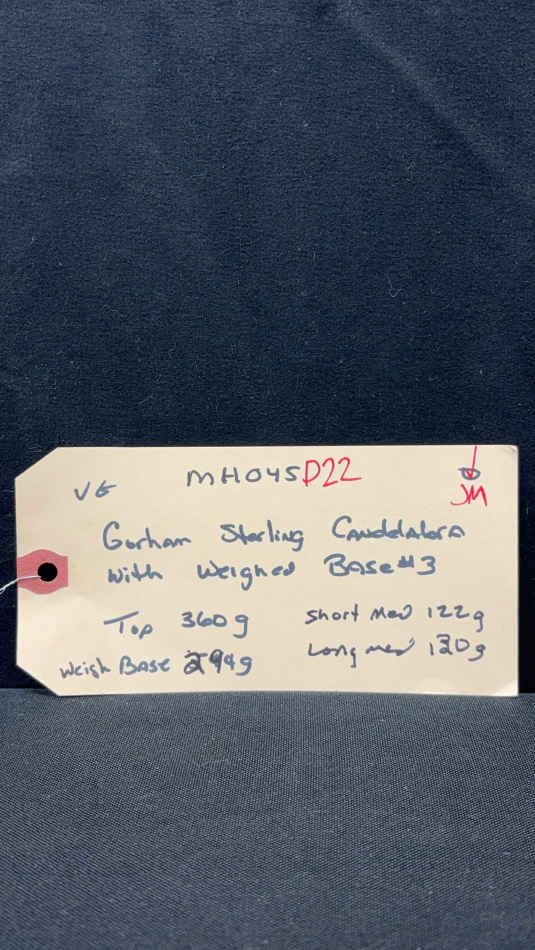 VG MH045D22
JM
Gorham Sterling Canddalora
with Weighed Base #3
Top 360g Short Med 122g
Weigh Base 294g Long med 120g